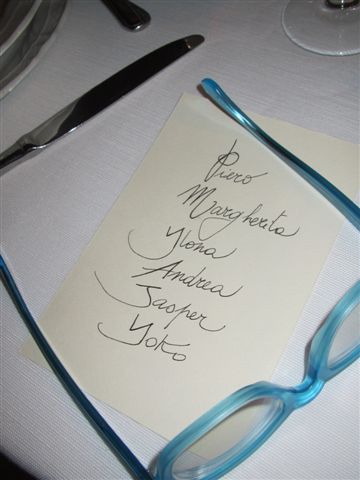 Piero
Margherita
Ylona
Andrea
Jasper
Yoko